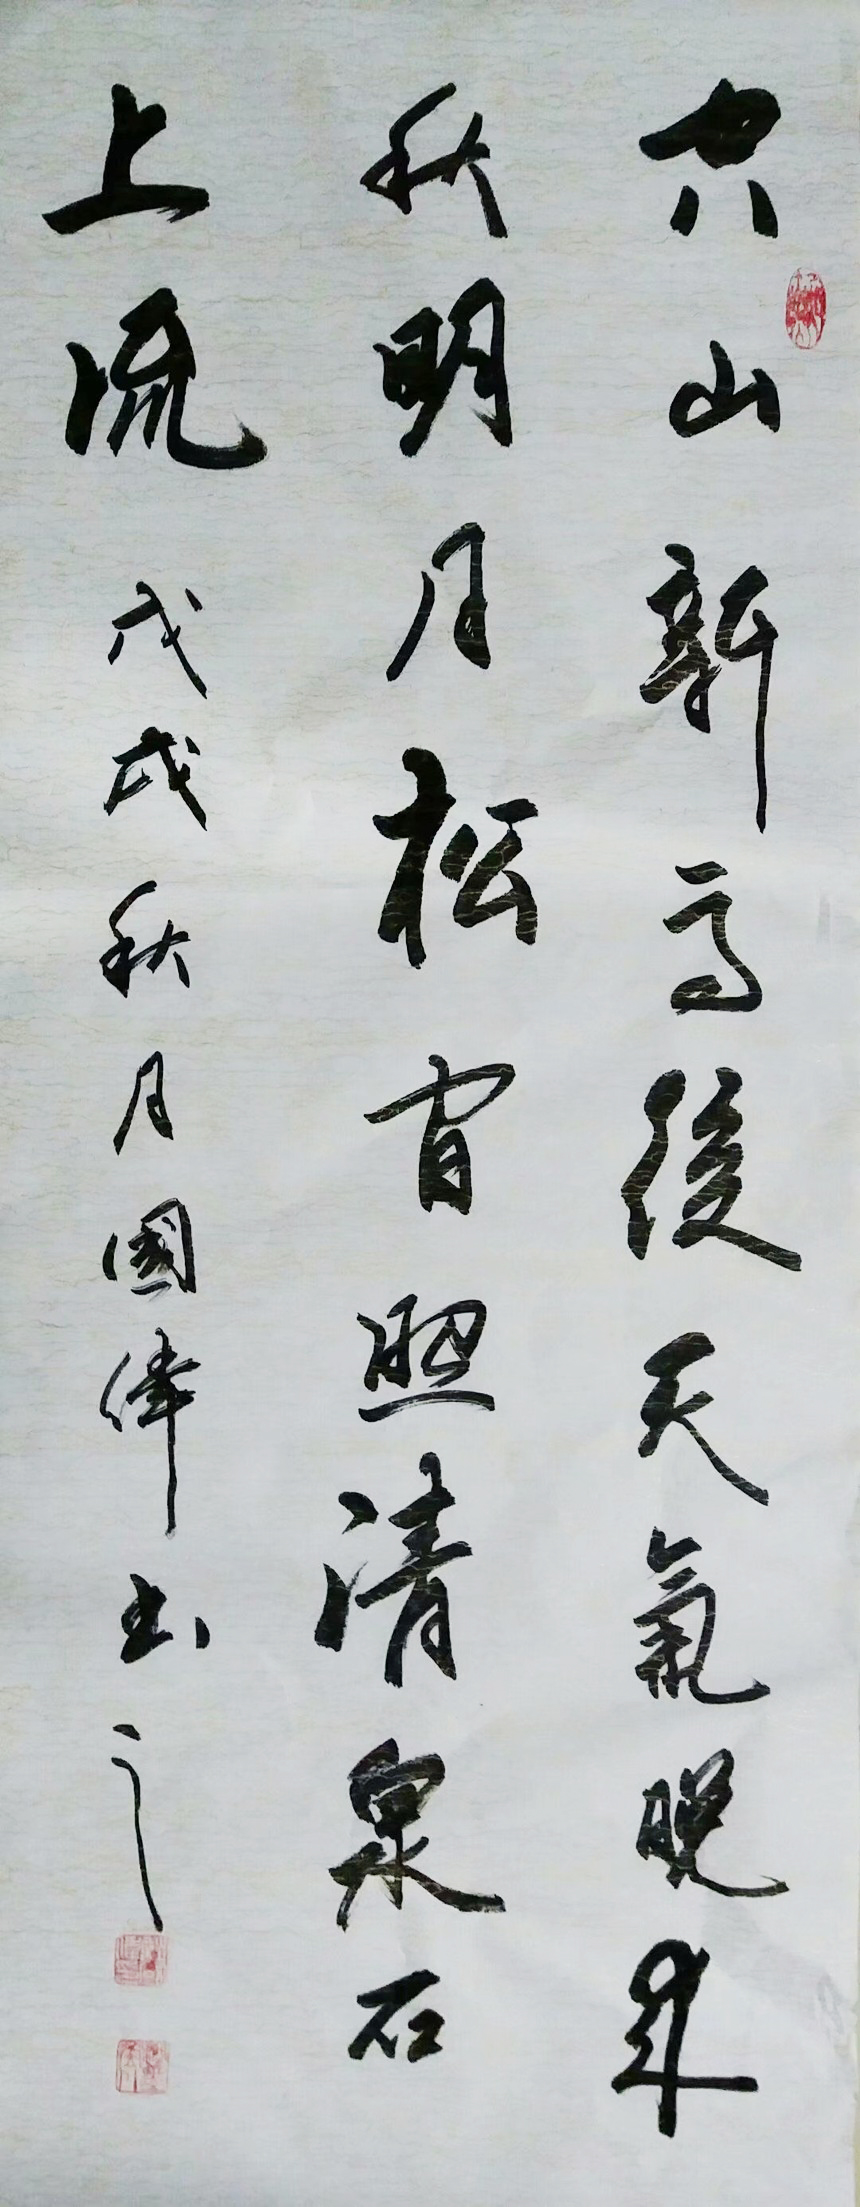 空山新雨後天氣晚來
秋明月松間照清泉石
上流 戊戌秋月國偉书之